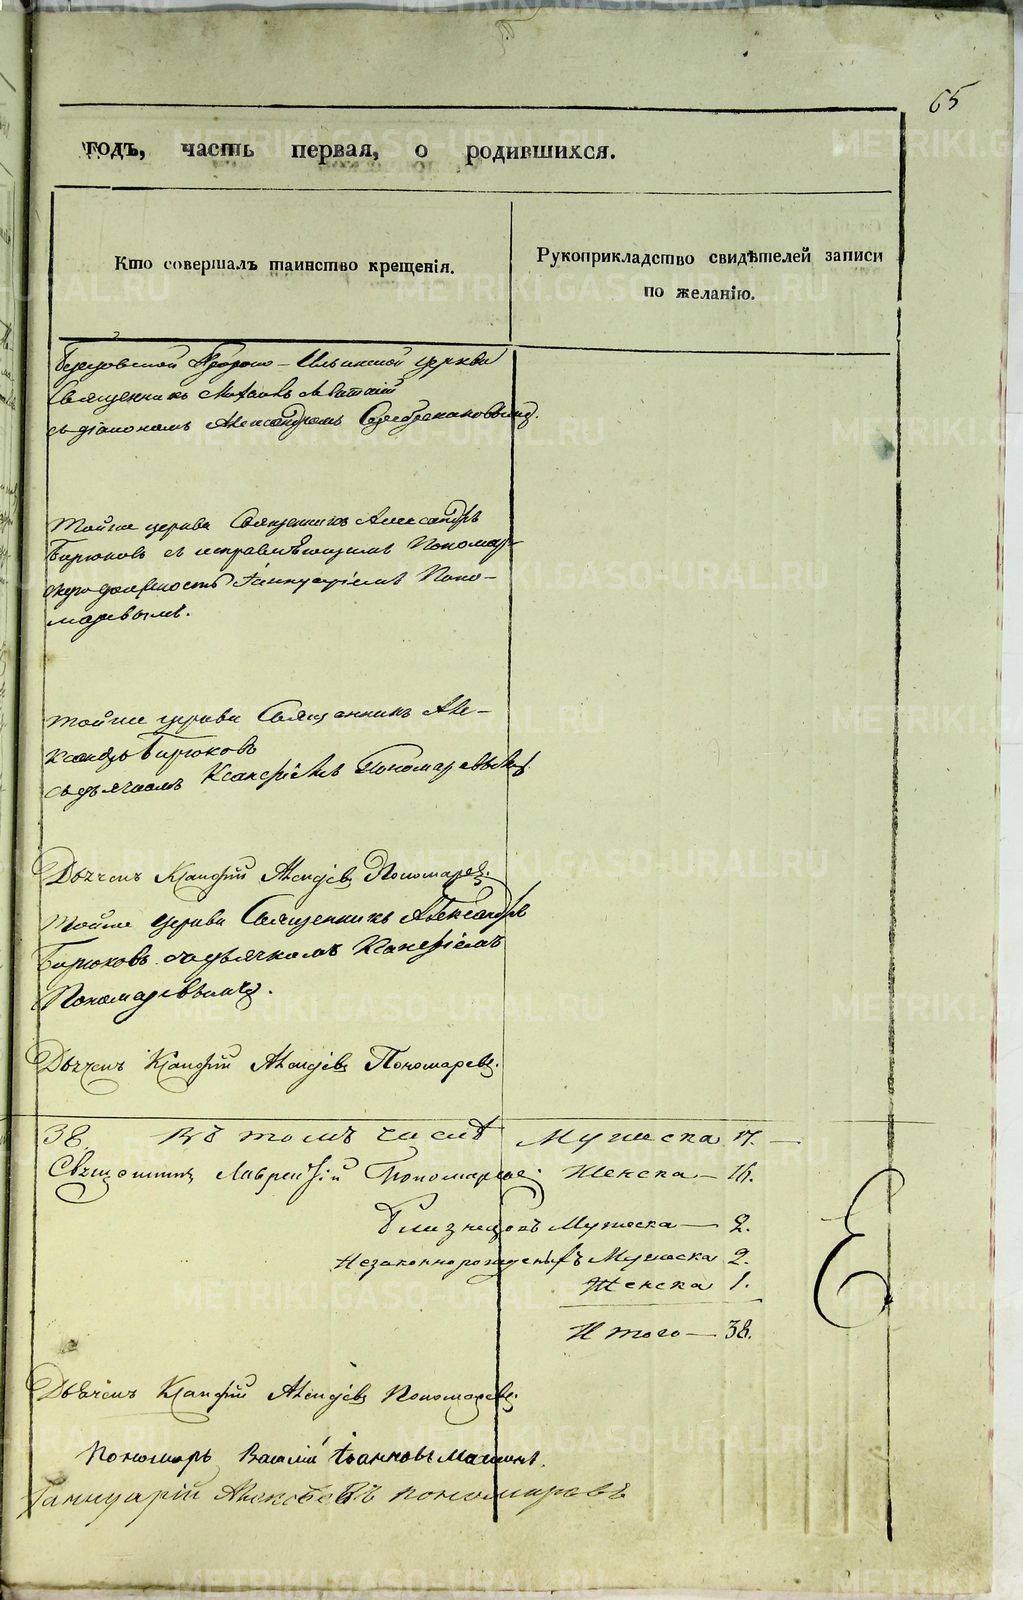 65
годъ, часть первая, о родившихся.
Кто совершалъ таинство крещенія.
Рукоприкладство свидѣтелей записи
по желанію.
Пророко-Ильинской церкви
Священникъ
съ діакономъ Александромъ Серебрениковымъ.
Тойже церкви Священникъ Александръ
Бирюковъ съ исправляющимъ Пономар-
скую должность Іаннуаріемъ Поно-
маревымъ.
Тойже церкви Священникъ Але-
ксандръ Бирюковъ
съ дьячкомъ Ксанфіемъ Пономаревымъ
Дьячекъ Ксанфій Пономаревъ.
Тойже церкви Священникъ Александръ
Бирюковъ съ дьячкомъ Ксанфіемъ
Пономаревымъ.
Дьячекъ Ксанфій Пономаревъ.
38 Въ томъ числѣ Мужеска 17. —
Священникъ Лаврентій Пономаревъ. Женска — 16.
Близнецовъ Мужеска — 2.
Незаконнорожденныхъ Мужеска 2.
Женска 1.
Итого — 38.
Дьячекъ Ксанфій Пономаревъ.
Пономарь Василій Іоанновъ
Іаннуарій Пономаревъ
METRIKI.GASO-URAL.RU